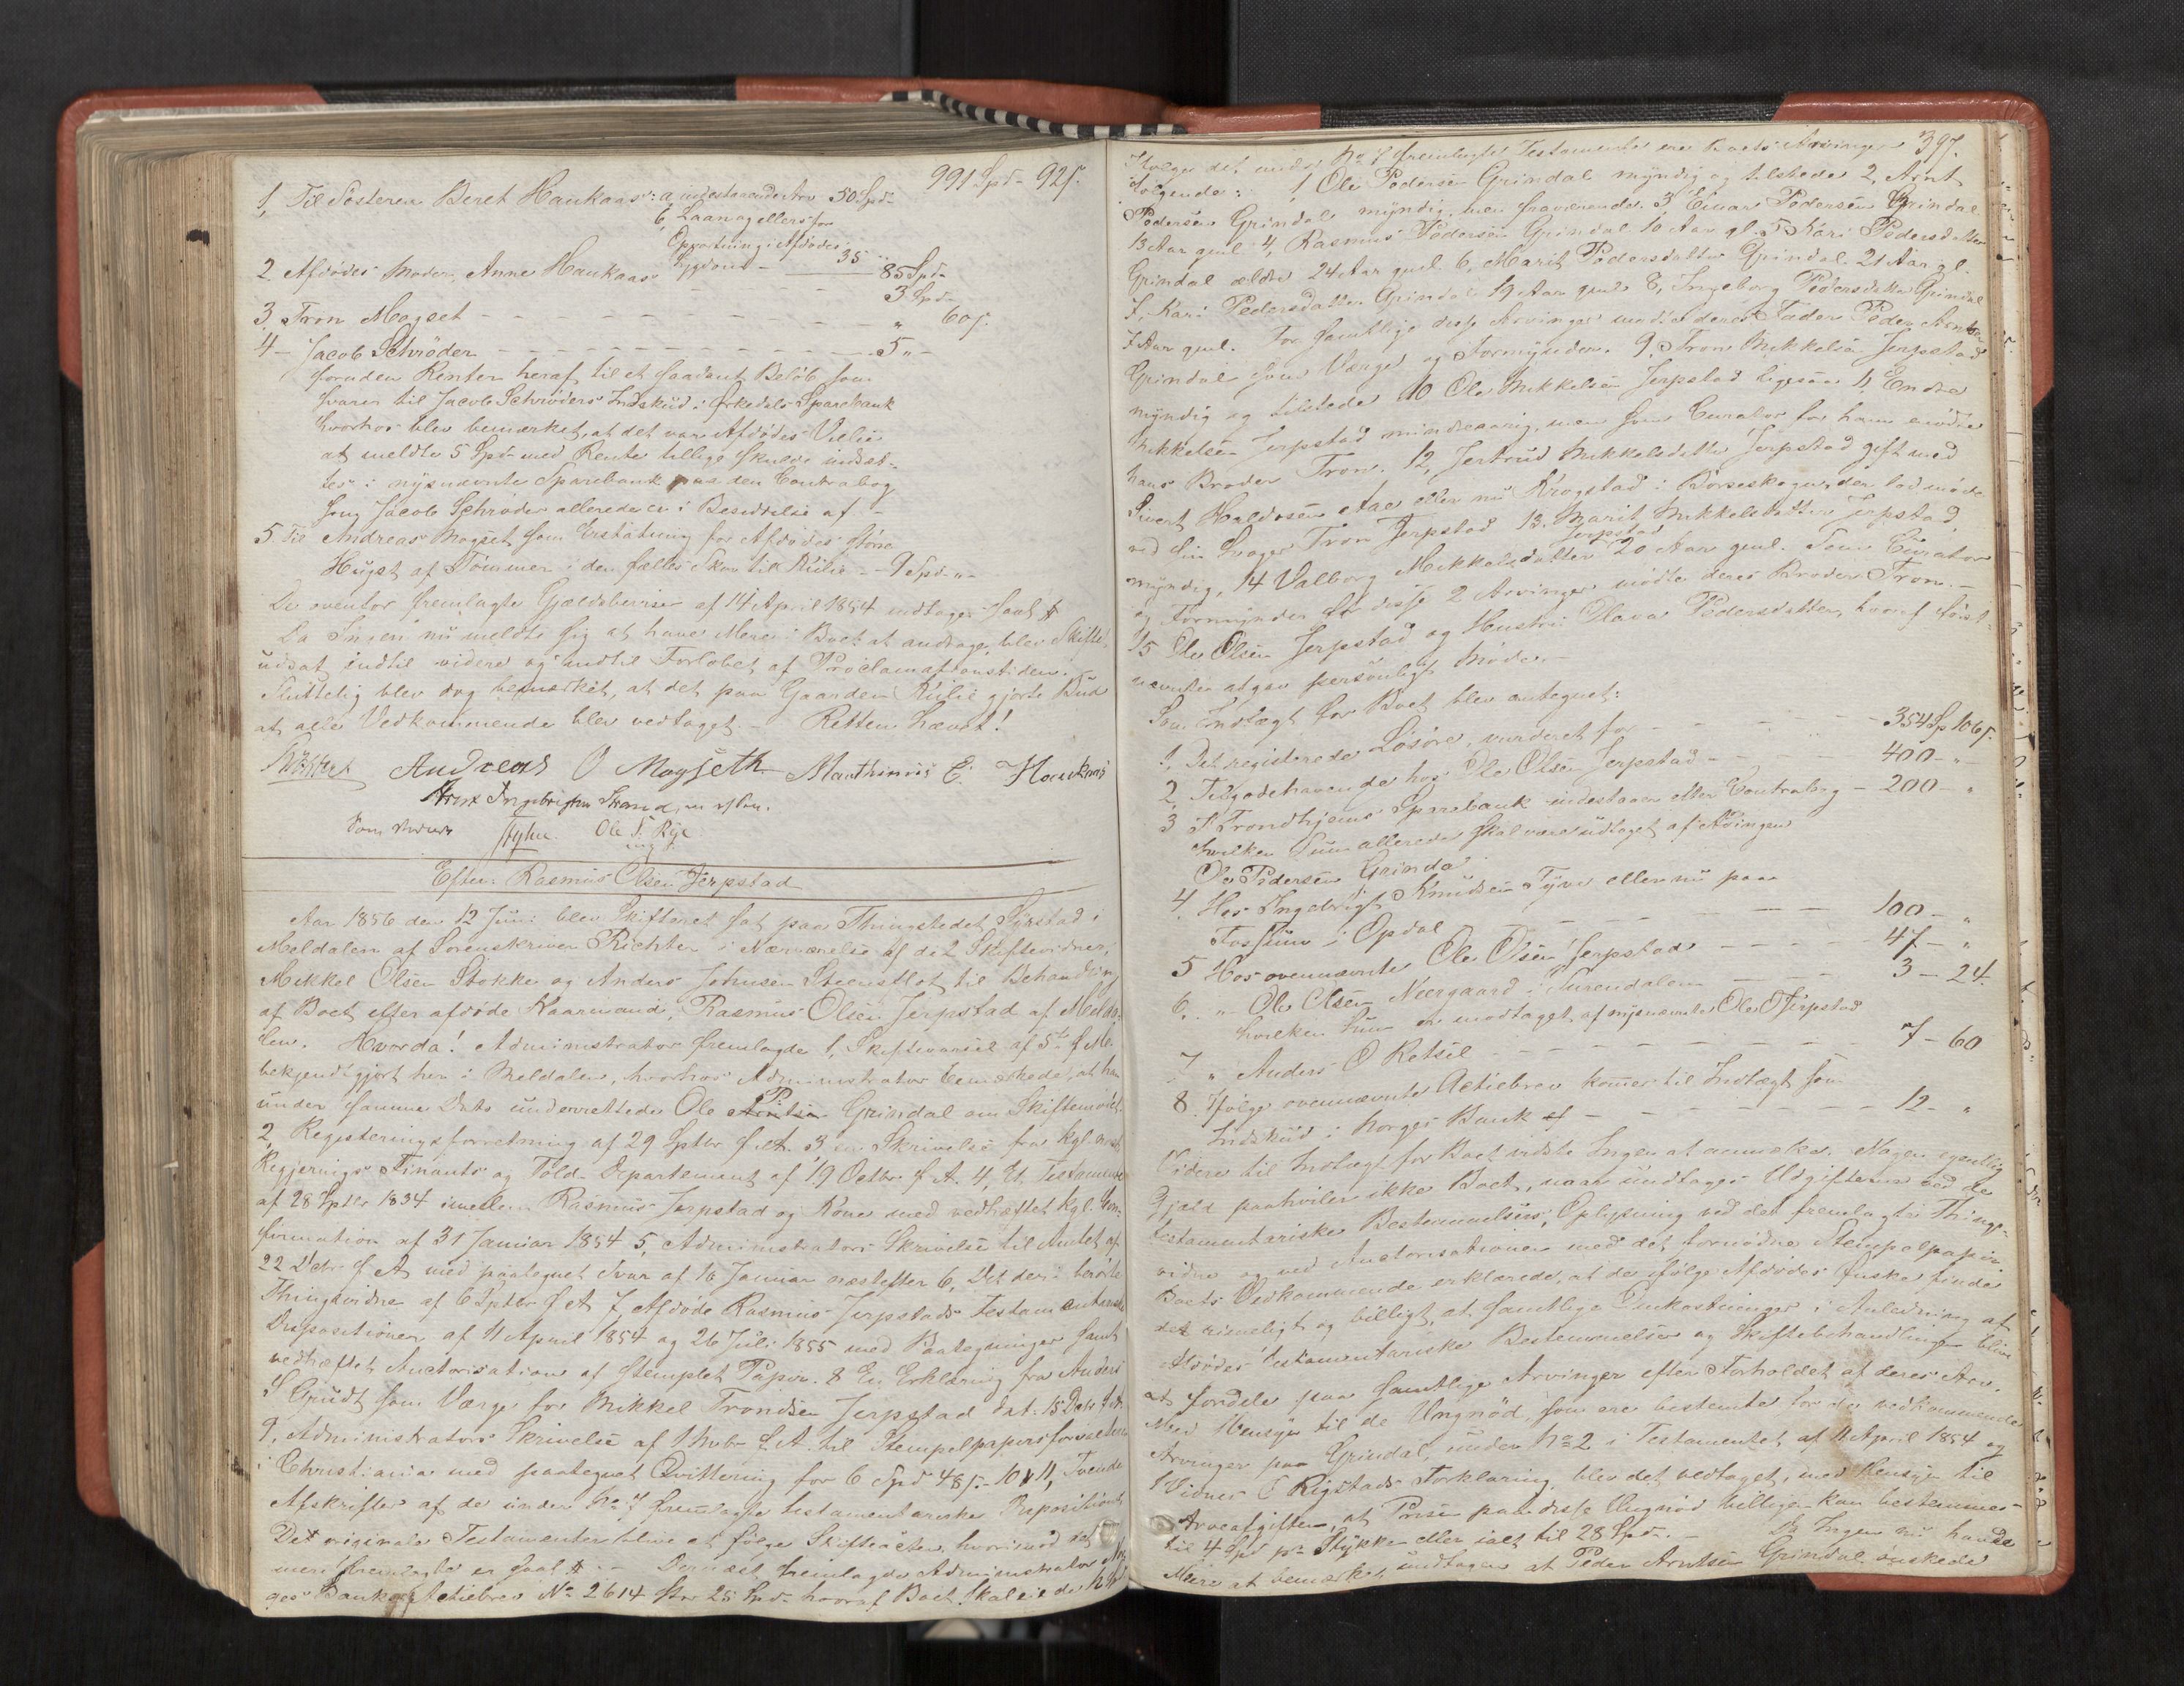 991 Spd - 92 s.
1, Til Søsteren Beret Haukaas: a, indestaaende Arv 50 Spd -
b, Laan og ellers for
Oppartning i Afdødes
Sygdom - 35 " 85 Spd -
2 Afdødes Moder, Anne Haukaas - - - 3 Spd -
3, Tron Mogset - - - - - - - " 60 s.
4 - Jacob Schrøder - - - - - - 5 " -
foruden Renter heraf til et saadant Beløb som
svarer til Jacob Schrøders Indskud i Ørkedals Sparebank
hvorhos blev bemærket, at det var Afdødes Villie
at meldte 5 Spd med Rente tillige skulde indsæt-
tes i nysnævnte Sparebank paa den Contrabog
som Jacob Schrøder allerede er i Besiddelse af -
5. Til Andreas Mogset som Erstatning for Afdødes større
Hugst af Tømmer i den fælles Skov til Rulie - 9 Spd - " -
De ovenfor fremlagte Gjældsbeviser af 14 April 1854 indtages saal. #
Da Ingen nu meldte sig at have Mere i Boet at andrage, blev Skiftet
udsat indtil videre og indtil Forløbet af Proclamationstiden.
Sluttelig blev dog bemærket, at det paa Gaarden Rulie gjorte Bud
af alle Vedkommende blev vedtaget. - Retten hævet!
Richter Andreas O Mogseth Marthinus E. Haukaas
Arnt Ingebrigtsen Strand, m. f. Pen.
Som Vidner Ole T. Rye
Efter Rasmus Olsen Jerpstad
Aar 1856 den 12 Juni blev Skifteret sat paa Thingstedet Syrstad i
Meldalen af Sorenskriver Richter i Nærværelse af de 2 Skiftevidner,
Mikkel Olsen Stokke og Anders Johnsen Steenslot til Behandling
af Boet efter afdøde Kaarmand, Rasmus Olsen Jerpstad af Melda-
len. Hvorda! Administrator fremlagde 1, Skiftevarsel af 5te f. M.
bekjendtgjort her i Meldalen, hvorhos Administrator bemærkede, at han
under samme Dato underrettede Ole P. Grindal om Skiftemødet.
2, Registeringsforretning af 29 Sptbr f. A. 3, en Skrivelse fra Kgl. norsk
Regjerings Finants og Told-Departement af 19 Octbr f. A. 4, Et Testamente
af 28 Sptbr 1834 imellem Rasmus Jerpstad og Kone med vedhæftet Kgl. Con-
firmation af 31 Januar 1854 5, Administrators Skrivelse til Amtet af
22 Decbr f. A. med paategnet Svar af 16 Januar næstefter 6, Det deri berørte
Thingsvidne af 6 Sptbr f. A. 7, Afdøde Rasmus Jerpstads Testamentariske
Dispositioner af 11 April 1854 og 26 Juli 1855 med Paategninger samt
vedhæftet Auctorisation af stemplet Papir. 8 En Erklæring fra Anders
S Grudt som Værge for Mikkel Trondsen Jerpstad dat. 15 Decbr
9, Administrators Skrivelse af 1 Novbr f. A. til Stempelpapirsforvalteren
i Christiania med paategnet Qvittering for 6 Spd 48 s. - 10 & 11, Tvende
Afskrifter af de under No 7 fremlagte testamentariske Dispositioner
Det originale Testamente blive at følge Skifteacten, hvorimod det
mere fremlagte er saal. # - Dernæst fremlagde Administrator Nor-
ges Banks Actiebrev No 2614 for 25 Spd - hvoraf Boet skal eie de
397.
Ifølge det under No 7 fremlagte Testamente ere Boets Arvinger
følgende: 1, Ole Pedersen Grindal myndig og tilstede 2, Arnt
Pedersen Grindal myndig, men fraværende. 3, Einar Pedersen Grindal
13 Aar gml. 4, Rasmus Pedersen Grindal 10 Aar gl. 5 Kari Pedersdatter
Grindal ældre 24 Aar gml. 6, Marit Pedersdatter Grindal 21 Aar gl.
7, Kari Pedersdatter Grindal 19 Aar gml. 8, Ingeborg Pedersdatter Grindal
7 Aar gml. For samtlige disse Arvinger mødte deres Fader Peder Arntsen
Grindal som Værge og Formynder. 9, Tron Mikkelsen Jerpstad
myndig og tilstede 10 Ole Mikkelsen Jerpstad ligesaa 11 Endre
Mikkelsen Jerpstad mindreaarig, men som Curator for ham mødte
hans Broder Tron. 12, Jertrud Mikkelsdatter Jerpstad gift med
Sivert Haldosen Aae eller nu Krogstad i Børseskogn, der lod møde
ved sin Svoger Tron Jerpstad 13. Marit Mikkelsdatter Jerpstad,
myndig, 14 Valborg Mikkelsdatter Jerpstad 20 Aar gml. Som Curator
og Formynder for disse 2 Arvinger mødte deres Broder Tron. -
15 Ole Olsen Jerpstad og Hustru Olava Pedersdatter, hvoraf først-
nævnte afgav personligt Møde. -
Som Indtægt for Boet blev antegnet:
1, Det registerede Løsøre, vurderet for - - - 354 Sp 106 s.
2, Tilgodehavende hos Ole Olsen Jerpstad - - - 400 - " -
3 I Trondhjems Sparebank indestaaer efter Contrabog - 200 - "
hvilken Sum allerede skal være udtaget af Arvingen
Ole Pedersen Grindal
4. Hos Ingebrigt Knudsen Tyve eller nu paa
Fossum i Opdal - - - - - 100 - "
5 Hos ovennævnte Ole Olsen Jerpstad - - - 47 - "
6. " Ole Olsen Neergaard i Surendalen - - - 3 - 24.
hvilken Sum er modtaget af nysnævnte Ole O Jerpstad
7 " Anders O Ketsel - - - - - 7 - 60
8. Ifølge ovennævnte Actiebrev kommer til Indtægt som
Indskud i Norges Bank - - - - - 12 - "
Videre til Indtægt for Boet vidste Ingen at anmælde. Nogen egentlig
Gjæld paahviler ikke Boet, naar undtages Udgifterne ved de
testamentariske Bestemmelser, Oplysning ved det fremlagte Things-
vidne og ved Auctorisationen med det fornødne Stempelpapir
Boets Vedkommende erklærede, at de ifølge Afdødes Ønske finde
det rimeligt og billigt, at samtlige Omkostninger i Anledning af
Afdødes testamentariske Bestemmelser og Skiftebehandlingen blive
at fordele paa samtlige Arvinger efter Forholdet af deres Arv.
Med Hensyn til de Ungnød, som ere bestemte for de vedkommende
Arvinger paa Grindal, under No 2 i Testamentet af 11 April 1854 og
Vidnes E Rigstads Forklaring blev det vedtaget, med Hensyn til
Arveafgiften, at Prisen paa disse Ungnød billigen kan bestemmes
til 4 Spd pr Stykke eller ialt til 28 Spd. - Da Ingen nu havde
Mere at bemærke, undtagen at Peder Arntsen Grindal ønskede